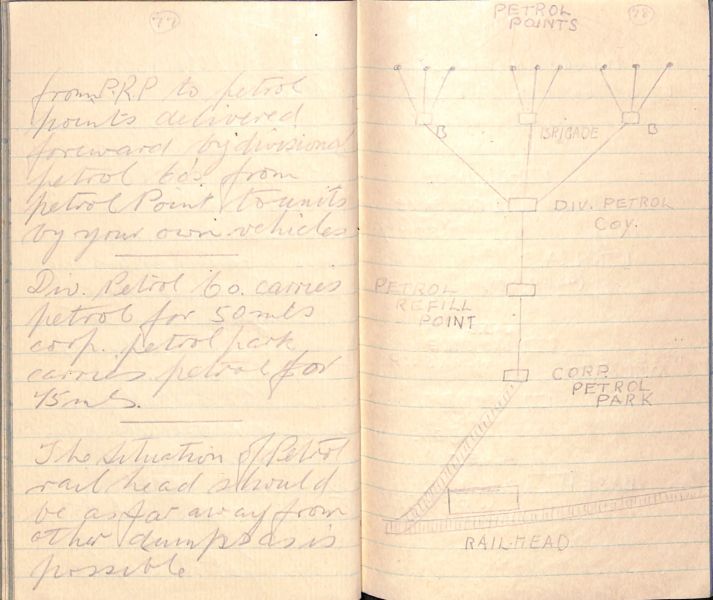 77
from P.R.P to petrol
points delivered
foreward by divisional
petrol Co's from
petrol Point to units
by your own vehicles
Div. Petrol Co. carries
petrol for 50 mls
corp. petrol park
carries petrol for
75 mls.
The situation of Petrol
rail head should
be as far away from
other dumps as is
possible
78
PETROL
POINTS
B
BRIGADE
B
DIV. PETROL
COY.
PETROL
REFILL
POINT
CORP.
PETROL
PARK
RAIL-HEAD